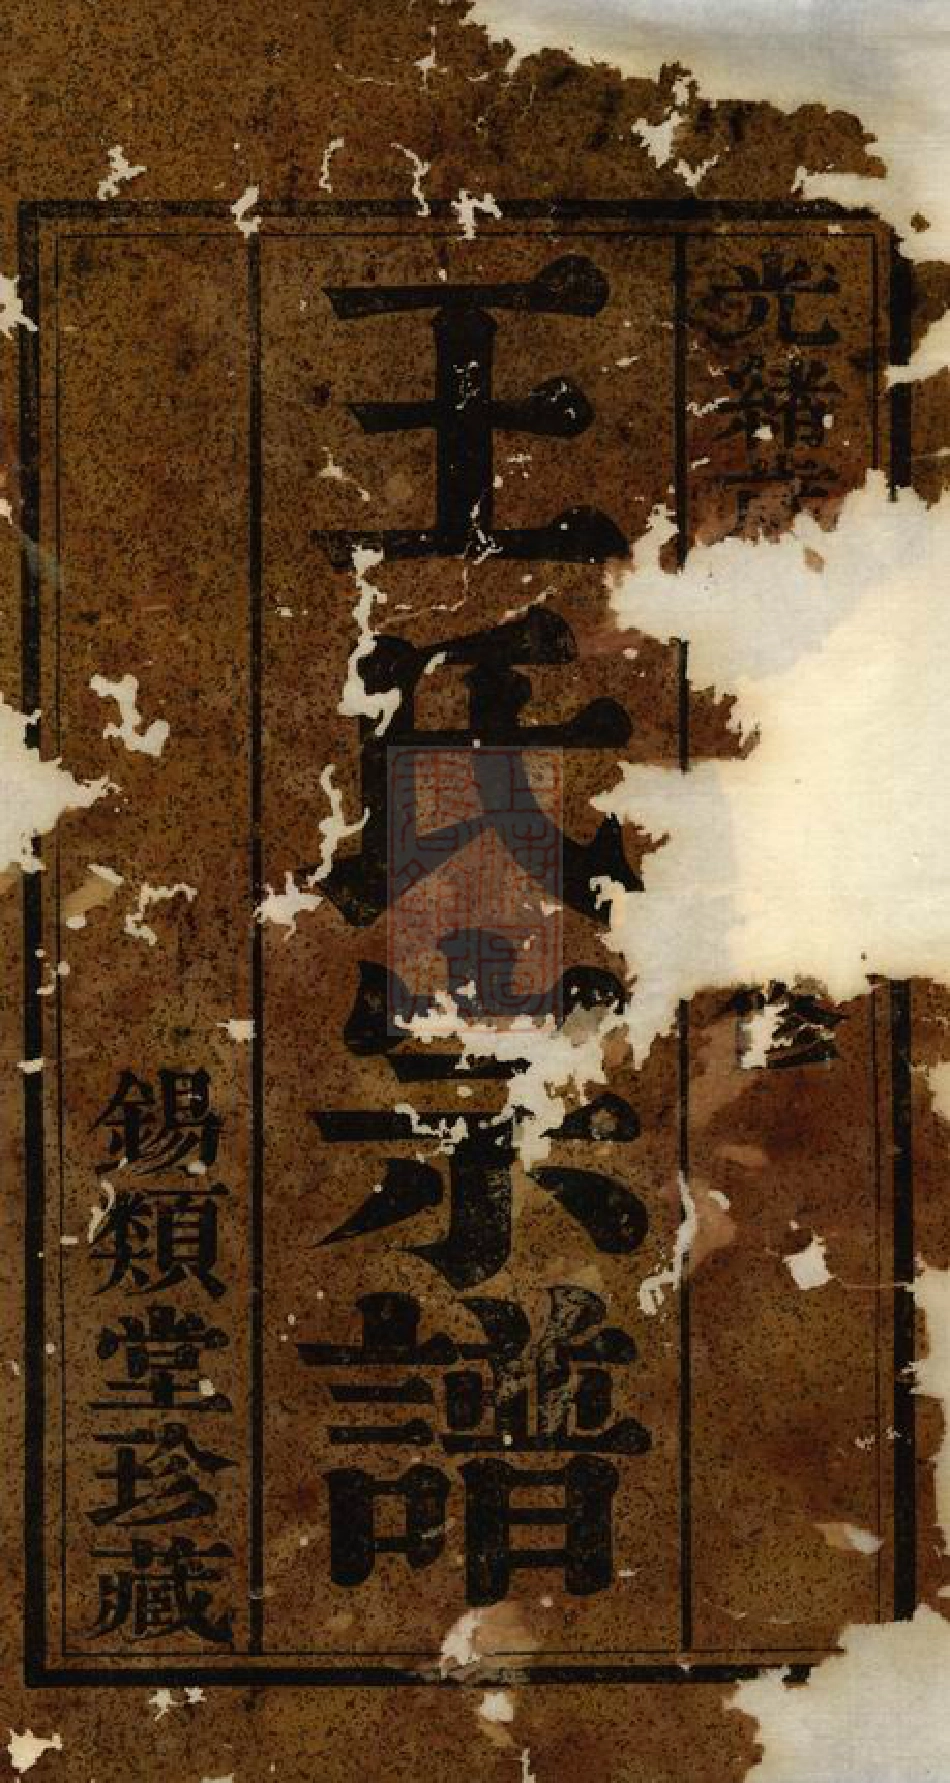 光緒
王氏宗譜
錫類堂珍藏